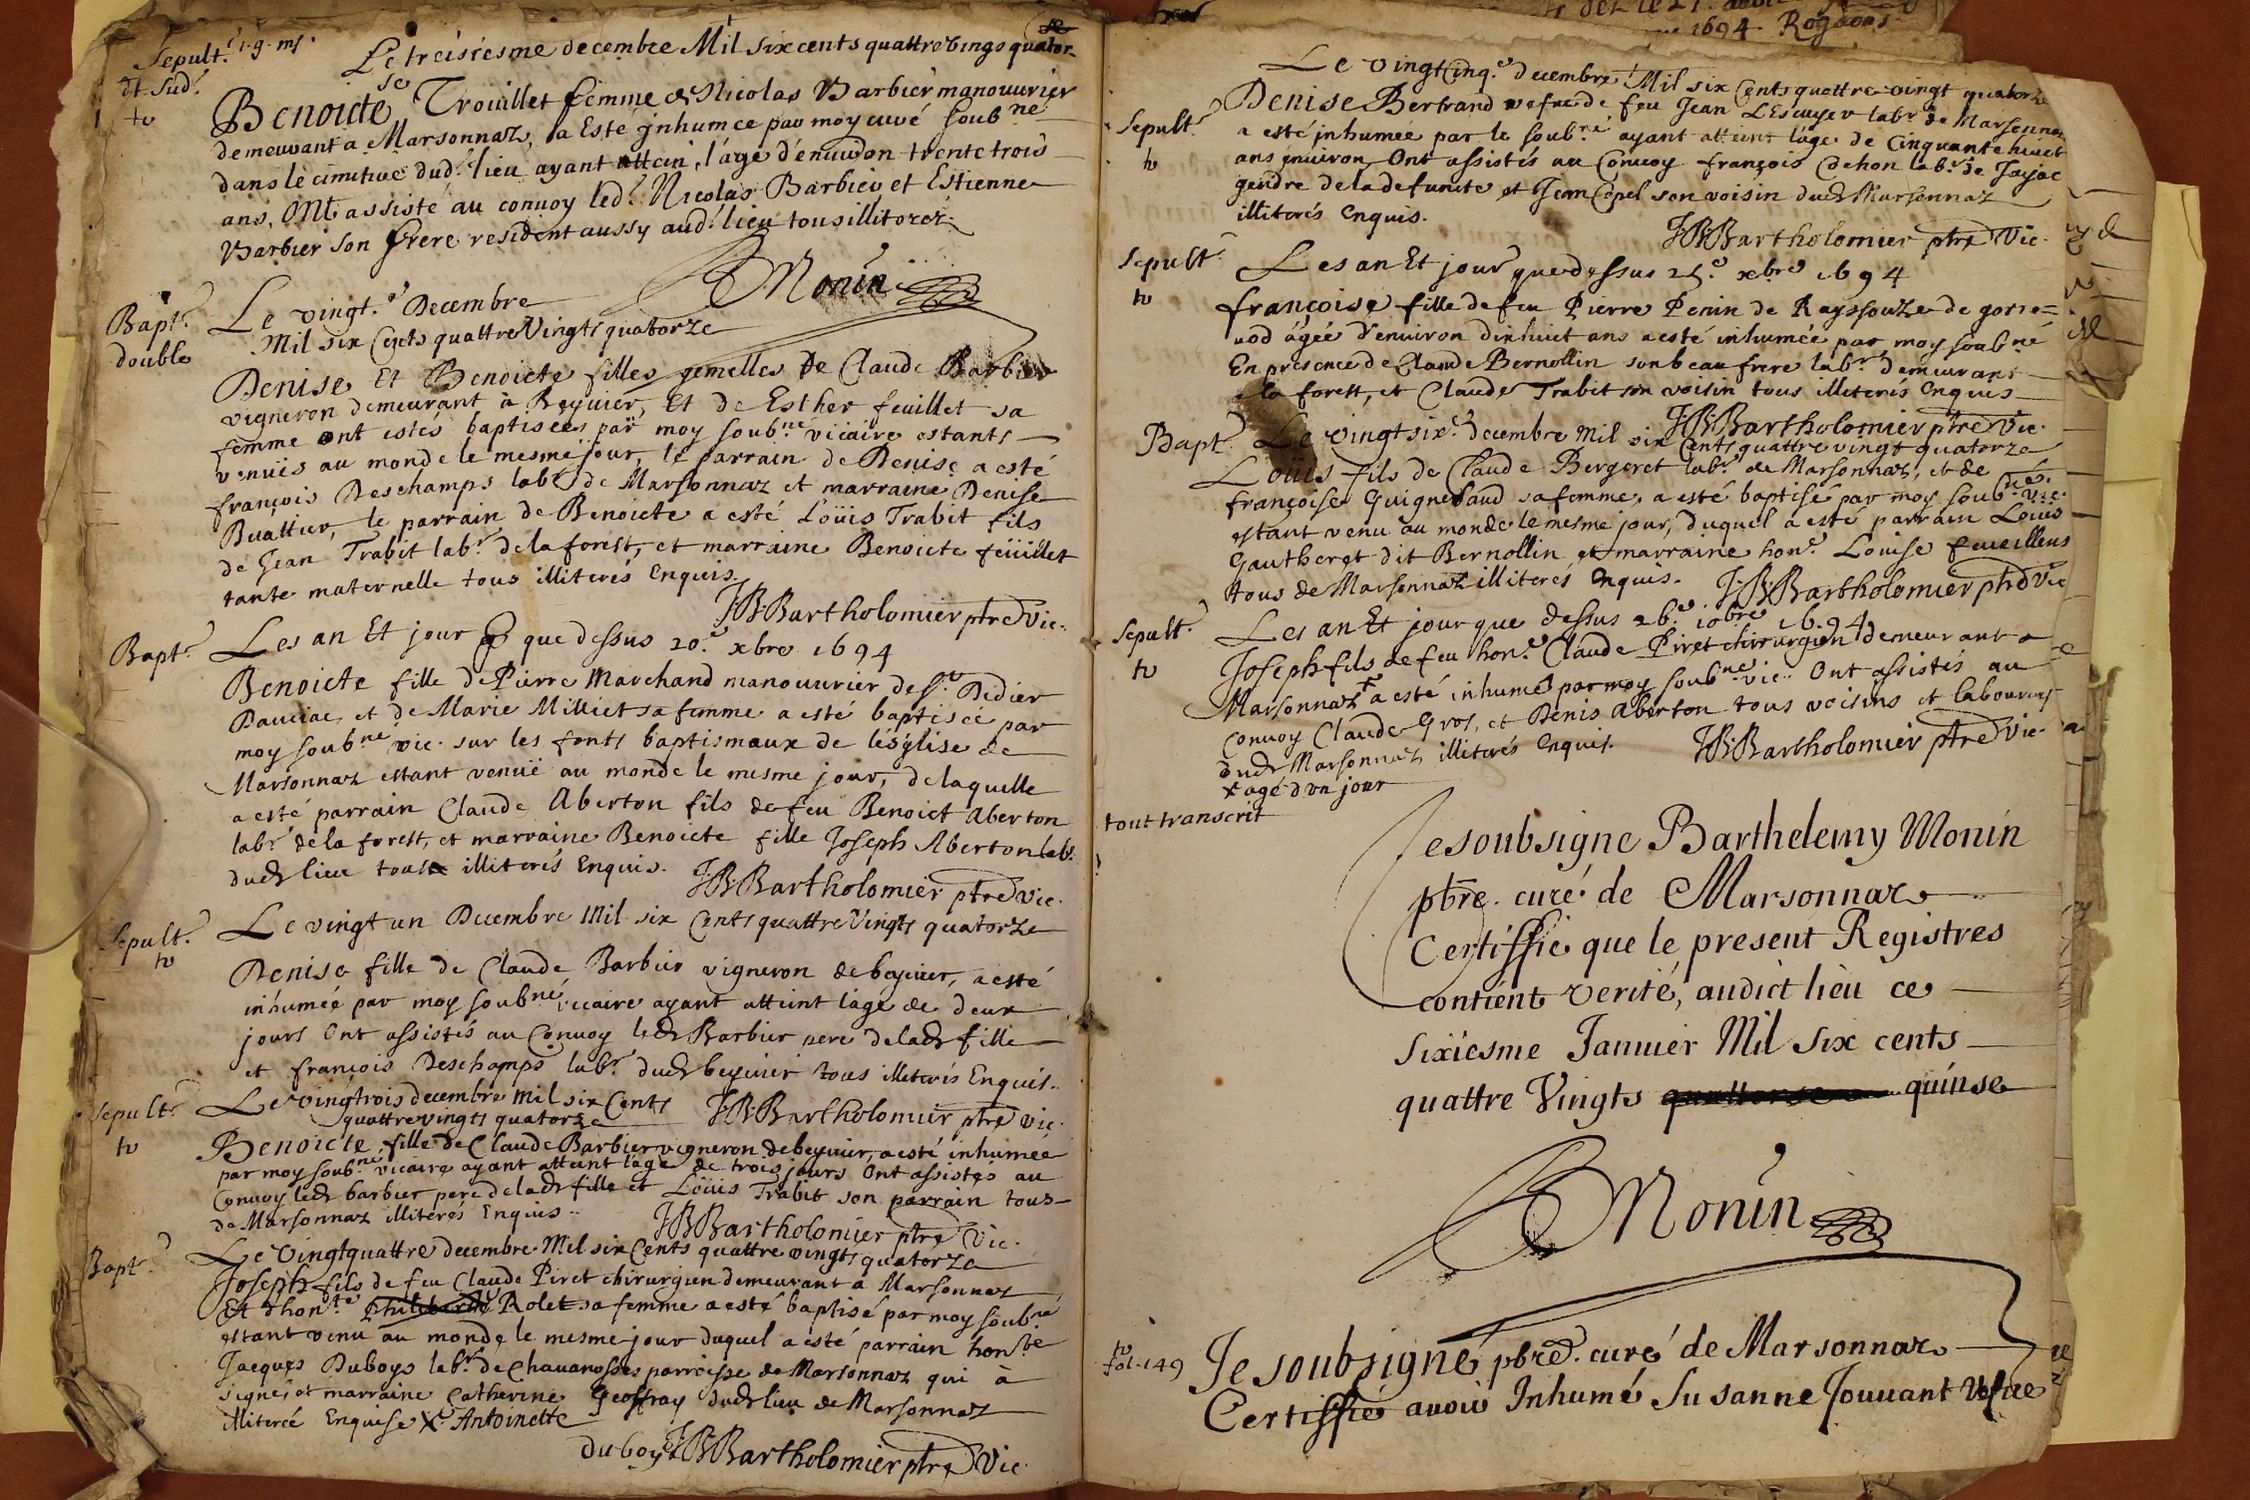 Sepult.
dt Sud.
to
Le treisiesme decembre Mil six cents quattre vingts quator-
se
Benoicte Trouillet femme de Nicolas Barbier manouurier
demeurant a Marsonnaz, a Esté inhumée par moy curé soub.né
dans le cimitive dud. lieu ayant attein l'age d'enuiron trente trois
ans, Ont assisté au conuoy led. Nicolas Barbier et Estienne
Barbier son frere resident aussy aud. lieu tous illiterez
Monin
Bapt.
double
Le vingt.e Decembre
Mil six Cents quattre Vingts quatorze
Denise Et Benoicte filles gemelles de Claude Barbier
vigneron demeurant à Beyuier, Et de Esther feuillet sa
femme ont estés baptisées par moy soub.né vicaire estants
venües au monde le mesme jour, le parrain de Denise a esté
françois Deschamps lab.r de Marsonnaz et marraine Denise
Buattier, le parrain de Benoicte a esté Loüis Trabit fils
de Jean Trabit lab.r de la forest, et marraine Benoicte feüillet
tante maternelle tous illiterés Enquis.
J:B:Bartholomier ptre Vic.
Bapt.
Les an Et jour que dessus 20.e xbre 1694
Benoicte fille de Pierre Marchand manouurier de S.t Didier
Dauciac et de Marie Milliet sa femme a esté baptisée par
moy soub.né vic. sur les fonts baptismaux de l'église de
Marsonnaz estant venuë au monde le mesme jour, de laquelle
a esté parrain Claude Aberton fils de feu Benoict Aberton
lab.r de la forest, et marraine Benoicte fille Joseph Aberton lab.r
dud. lieu tous illiterés Enquis.
J:B:Bartholomier ptre Vic.
Sepult.
to
Le vingt un Decembre Mil six Cents quattre Vingts quatorze
Denise fille de Claude Barbier vigneron de beyuier, a esté
inhumée par moy soub.né vicaire ayant atteint l'age de deux
jours Ont assistés au Conuoy led. Barbier pere de lad. fille
et françois Deschamps lab.r dud. beyuier tous illiterés Enquis.
Sepult.
to
Le vingtrois decembre Mil six Cents
quattre vingts quatorze
J:B:Bartholomier ptre Vic.
Benoicte fille de Claude Barbier vigneron de beyuier, a esté inhumée
par moy soub.né vicaire ayant atteint l'age de trois jours Ont assistés au
Conuoy led. barbier pere de lad. fille et Loüis Trabit son parrain tous
de Marsonnaz illiterés Enquis.
J:B:Bartholomier ptre Vic.
Bapt.
Le Vingtquattre decembre Mil six Cents quattre vingts quatorze
Joseph fils de feu Claude Piret chirurgien demeurant a Marsonnaz
Et d'hon.te Philiberte Rolet sa femme a esté baptisé par moy soub.né
estant venu au monde le mesme jour duquel a esté parrain hon.ble
Jacques Duboys lab.r de Chauanosses parroisse de Marsonnaz qui à
signé, et marraine Catherine Geoffray dud. lieu de Marsonnaz
illiterée Enquise X Antoinette
duboys J:B:Bartholomier ptre Vic.
1694
Sepult.
to
Le vingtcinq.e decembre Mil six Cents quattre vingt quatorze
Denise Bertrand vefue de feu Jean L'Escuyer lab.r de Marsonnaz
a esté inhumée par le soub.né ayant atteint l'age de Cinquante huict
ans enuiron, Ont assistés au Conuoy françois Cchon lab.r de Jayac
gendre de la defunte et Jean Copel son voisin dud. Marsonnaz
illiterés Enquis.
J:B:Bartholomier ptre Vic.
Sepult.
to
Les an Et jour que dessus 25.e xbre 1694
françoise fille de feu Pierre Penin de Rayssouze de gorre=
uod agée d'enuiron dixhuict ans a esté inhumée par moy soub.né
En presence de Claude Bernollin son beau frere lab.r demeurant
a la forest, et Claude Trabit son voisin tous illiterés Enquis
J:B:Bartholomier ptre Vic.
Bapt.
Le vingtsix.e decembre Mil six Cents quattre vingt quatorze
Loüis fils de Claude Bergeret lab.r de Marsonnaz, et de
françoise Guignebaud sa femme, a esté baptisé par moy soub.né vic.
estant venu au monde le mesme jour, duquel a esté parrain Louis
Gautheret dit Bernollin et marraine hon.e Louise feueillens
tous de Marsonnaz illiterés Enquis.
J:B:Bartholomier ptre Vic
Sepult.
to
Les an Et jour que dessus 26.e 10bre 1694
Joseph fils de feu hon.e Claude Piret chirurgien demeurant a
Marsonnaz X a esté inhumé par moy soub.né vic. Ont assistés au
Conuoy Claude Gros, et Denis Aberton tous voisins et laboureurs
dud. Marsonnaz illiterés Enquis.
J:B:Bartholomier ptre Vic.
X agé d'un jour
tout transcrit
Je soubsigne Barthelemy Monin
pbre. curé de Marsonnaz
Certiffie que le present Registres
contient verité, audict lieu ce
sixiesme Januier Mil six cents
quattre Vingts quattorse quinse
Monin
to
fol. 149
Je soubsigne pbre. curé de Marsonnaz
Certiffie auoir Inhumé Susanne Jouuant Vefue